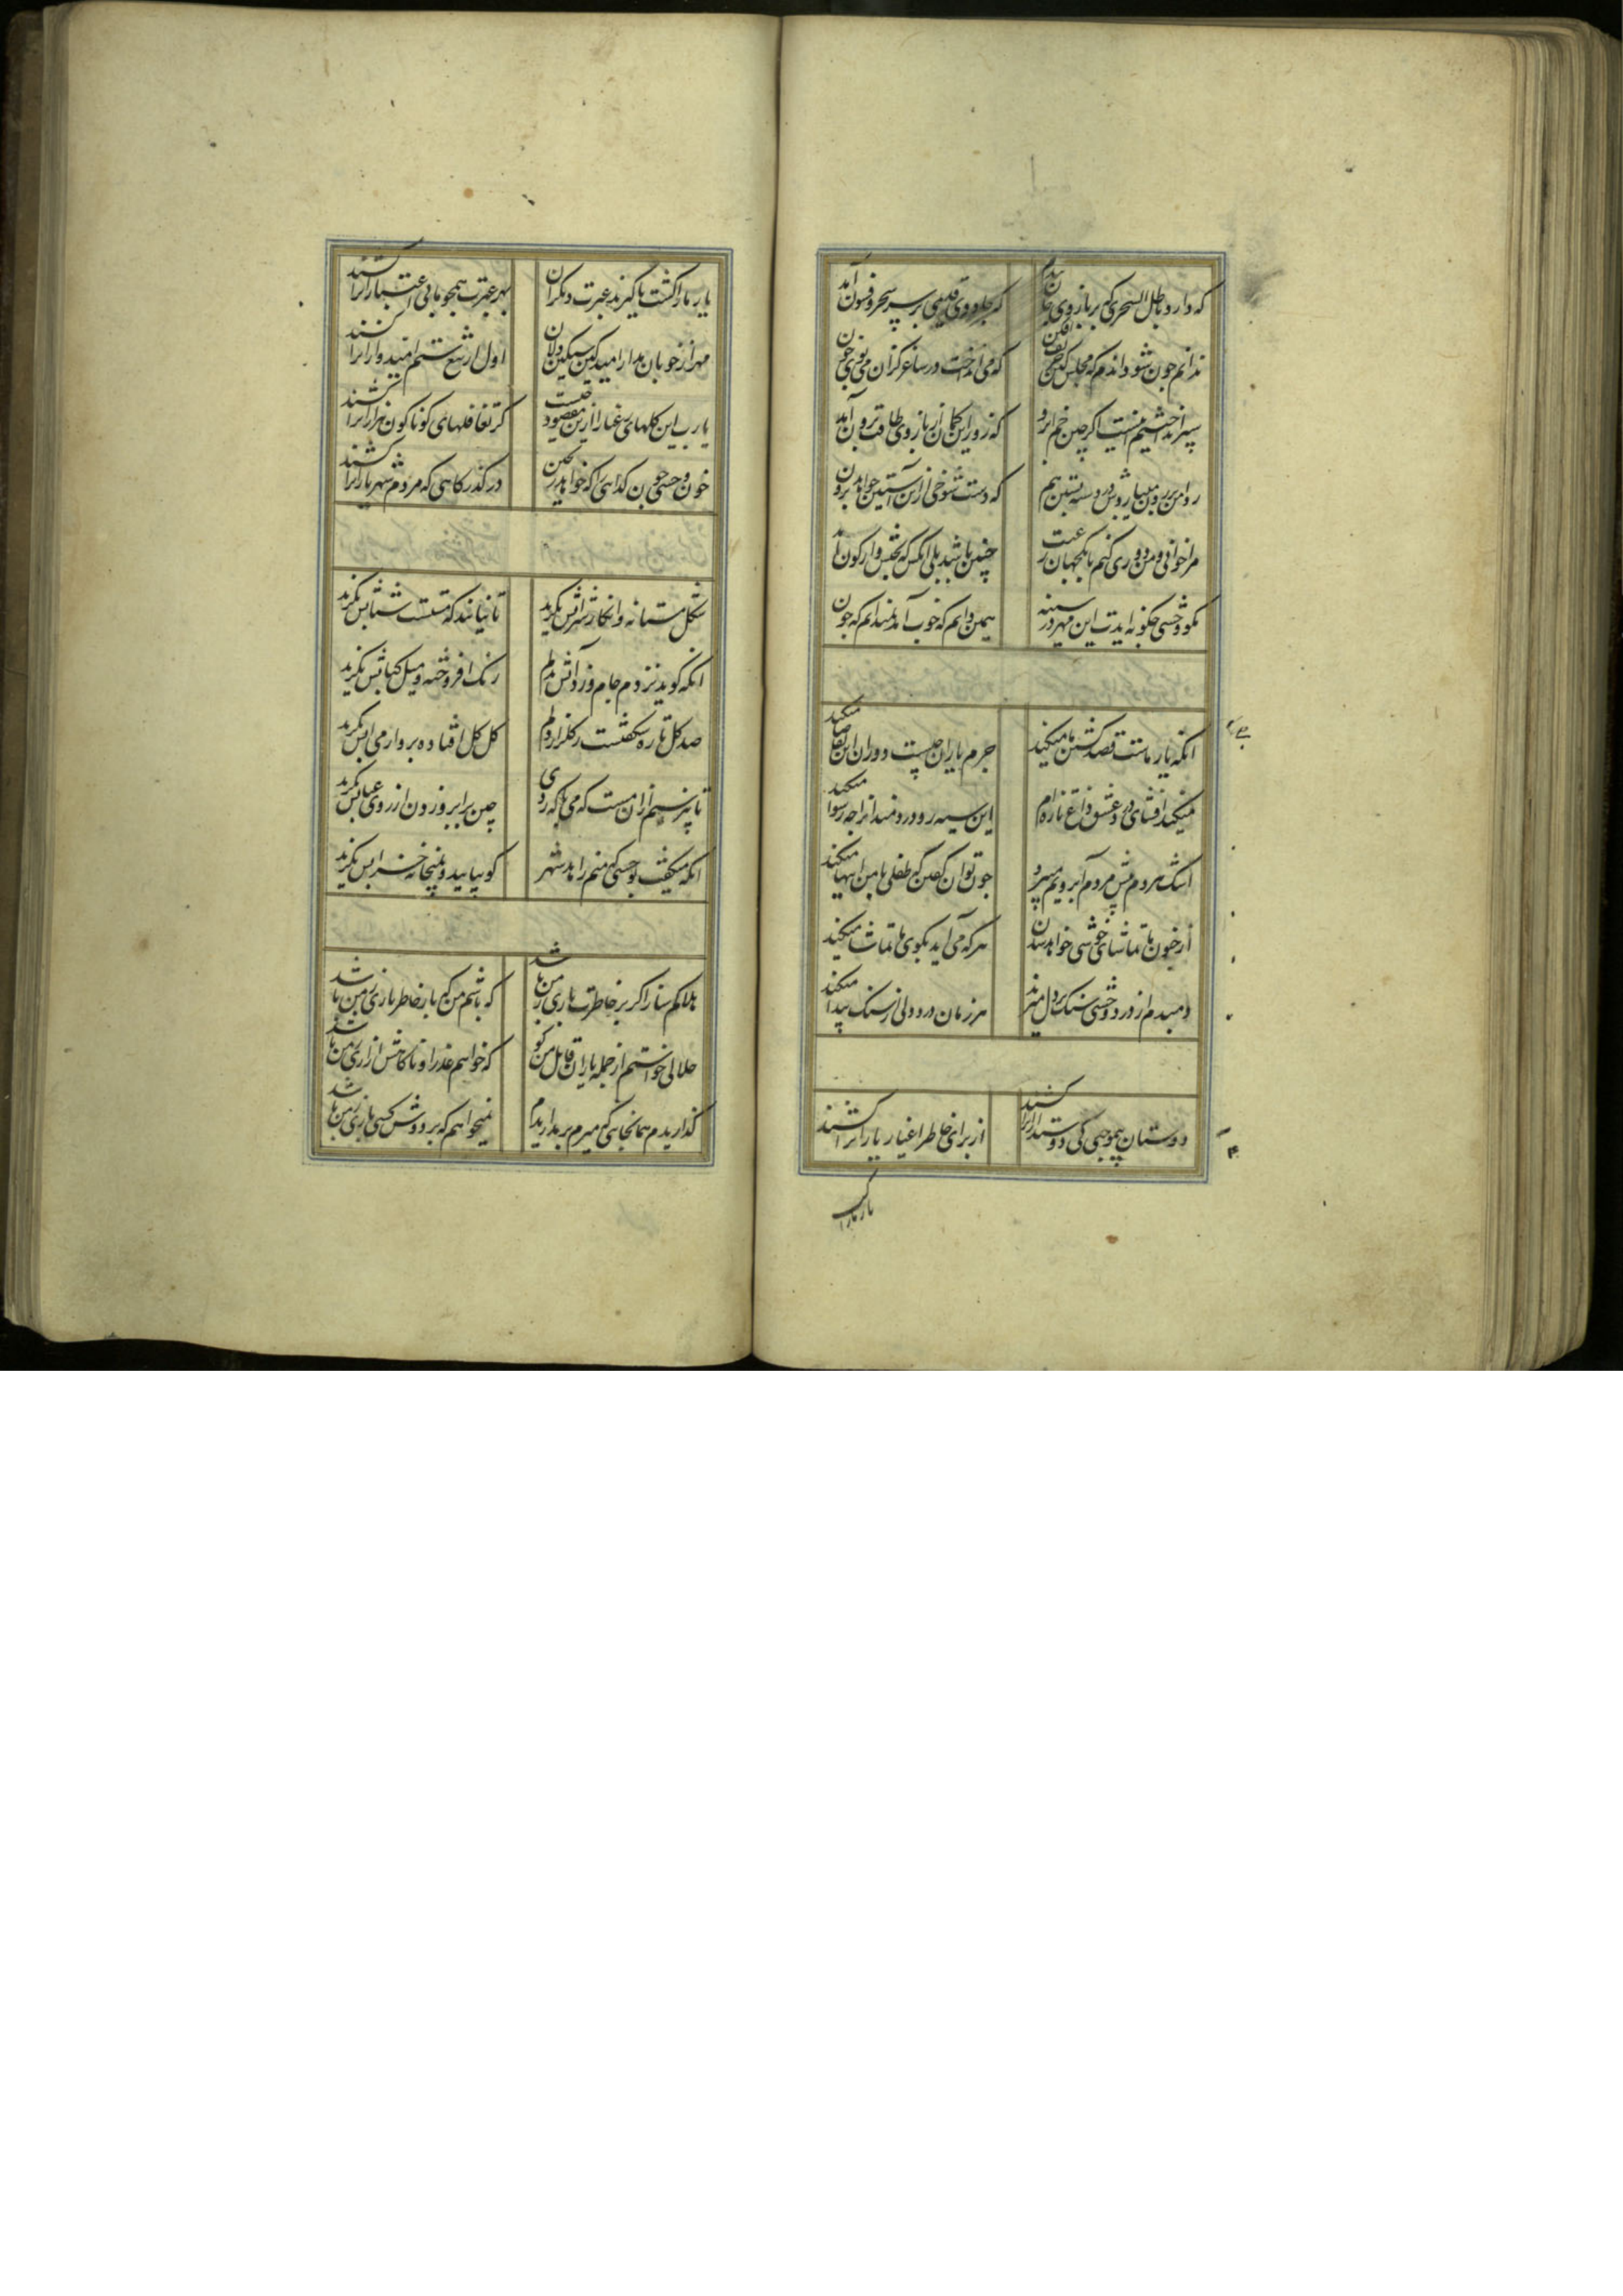 که دارد باطل السحری که بر بازوی جان بندم
که جادوی قدیمی بر سر سحر و فسون آمد
ندانم چون شود انجام مجلس کان حریف افکن
که می انداخت در ساغر کزان می بوی خون آمد
سپر انداختیم اینست اگر چین خم ابرو
که زور این کمان از بازوی طاقت فزون آمد
که دست شوخی از این آستین خواهد برون
مرا خوانی و من دوری کنم با یکجهان رغبت
چنین باشد بلی آنکس که بختش واژکون آمد
بکو وحشی چکونه آمدت این مهر در سینه
همین دانم که خوب آمد نمیدانم که چون
انکه یار ماست قصد کشتن ما میکند
جرم یاران چیست دوران این تقاضا میکند
میکند افشای درد عشق داغ تازه ام
این سیه رو دردمندانرا چه رسوا میکند
اشک هر دم پیش مردم آبرویم میبرد
چون توان کفتن که طفلی با من اینها میکند
ار جنون ما تماشای خوشی خواهد شدن
هر که می آید بکوی ما تماشا میکند
دمبدم از درد وحشی سنک بر دل میزند
هر زمان درد دلی از سنک پیدا میکند
دوستان بیموجبی کی دوستدارانرا کشند
از برای خاطر اغیار یارانرا کشند
یار مارا کشت
یار مارا کشت تا کیرند عبرت دیکران
بهر عبرت همچو ما بی اعتبارانرا کشند
مهر از خوبان مدار امید کین سنکین دلان
اول از تیغ ستم امیدوارانرا کشند
یارب این کلهای رعنا را ازین مقصود چیست
کز تغافلهای کوناکون هزارانرا کشند
خون وحشی چون کدایی را که خواهد ریختن
در کذرکاهی که مردم شهریارانرا کشند
شکل مستانه و انکار شرابش نکرید
تا ندانند که مستست شتابش نکرید
انکه کوید نزدم جام و زد آتش بدلم
رنک افروخته و میل کبابش نکرید
صد کل تازه شکفتست ز کلزار رخم
کل کل افتاده برو از می نابش نکرید
تا نپرسیم از آن مست که می با که زدی
چین بر ابرو زدن از روی عتابش نکرید
انکه میکفت بوحشی که منم زاهد شهر
کو بیایید و بمیخانه خرابش نکرید
هلاکم ساز اکر بر خاطرت باری ز من باشد
که باشم من که بار خاطر یاری ز من باشد
حلالی خواستم از جمله یاران قاتل من کو
که خواهم عذر او تا کاهش آزاری ز من باشد
کذاریدم همانجایی که میرم بر مداریدم
نمیخواهم که بر دوش کسی باری ز من باشد